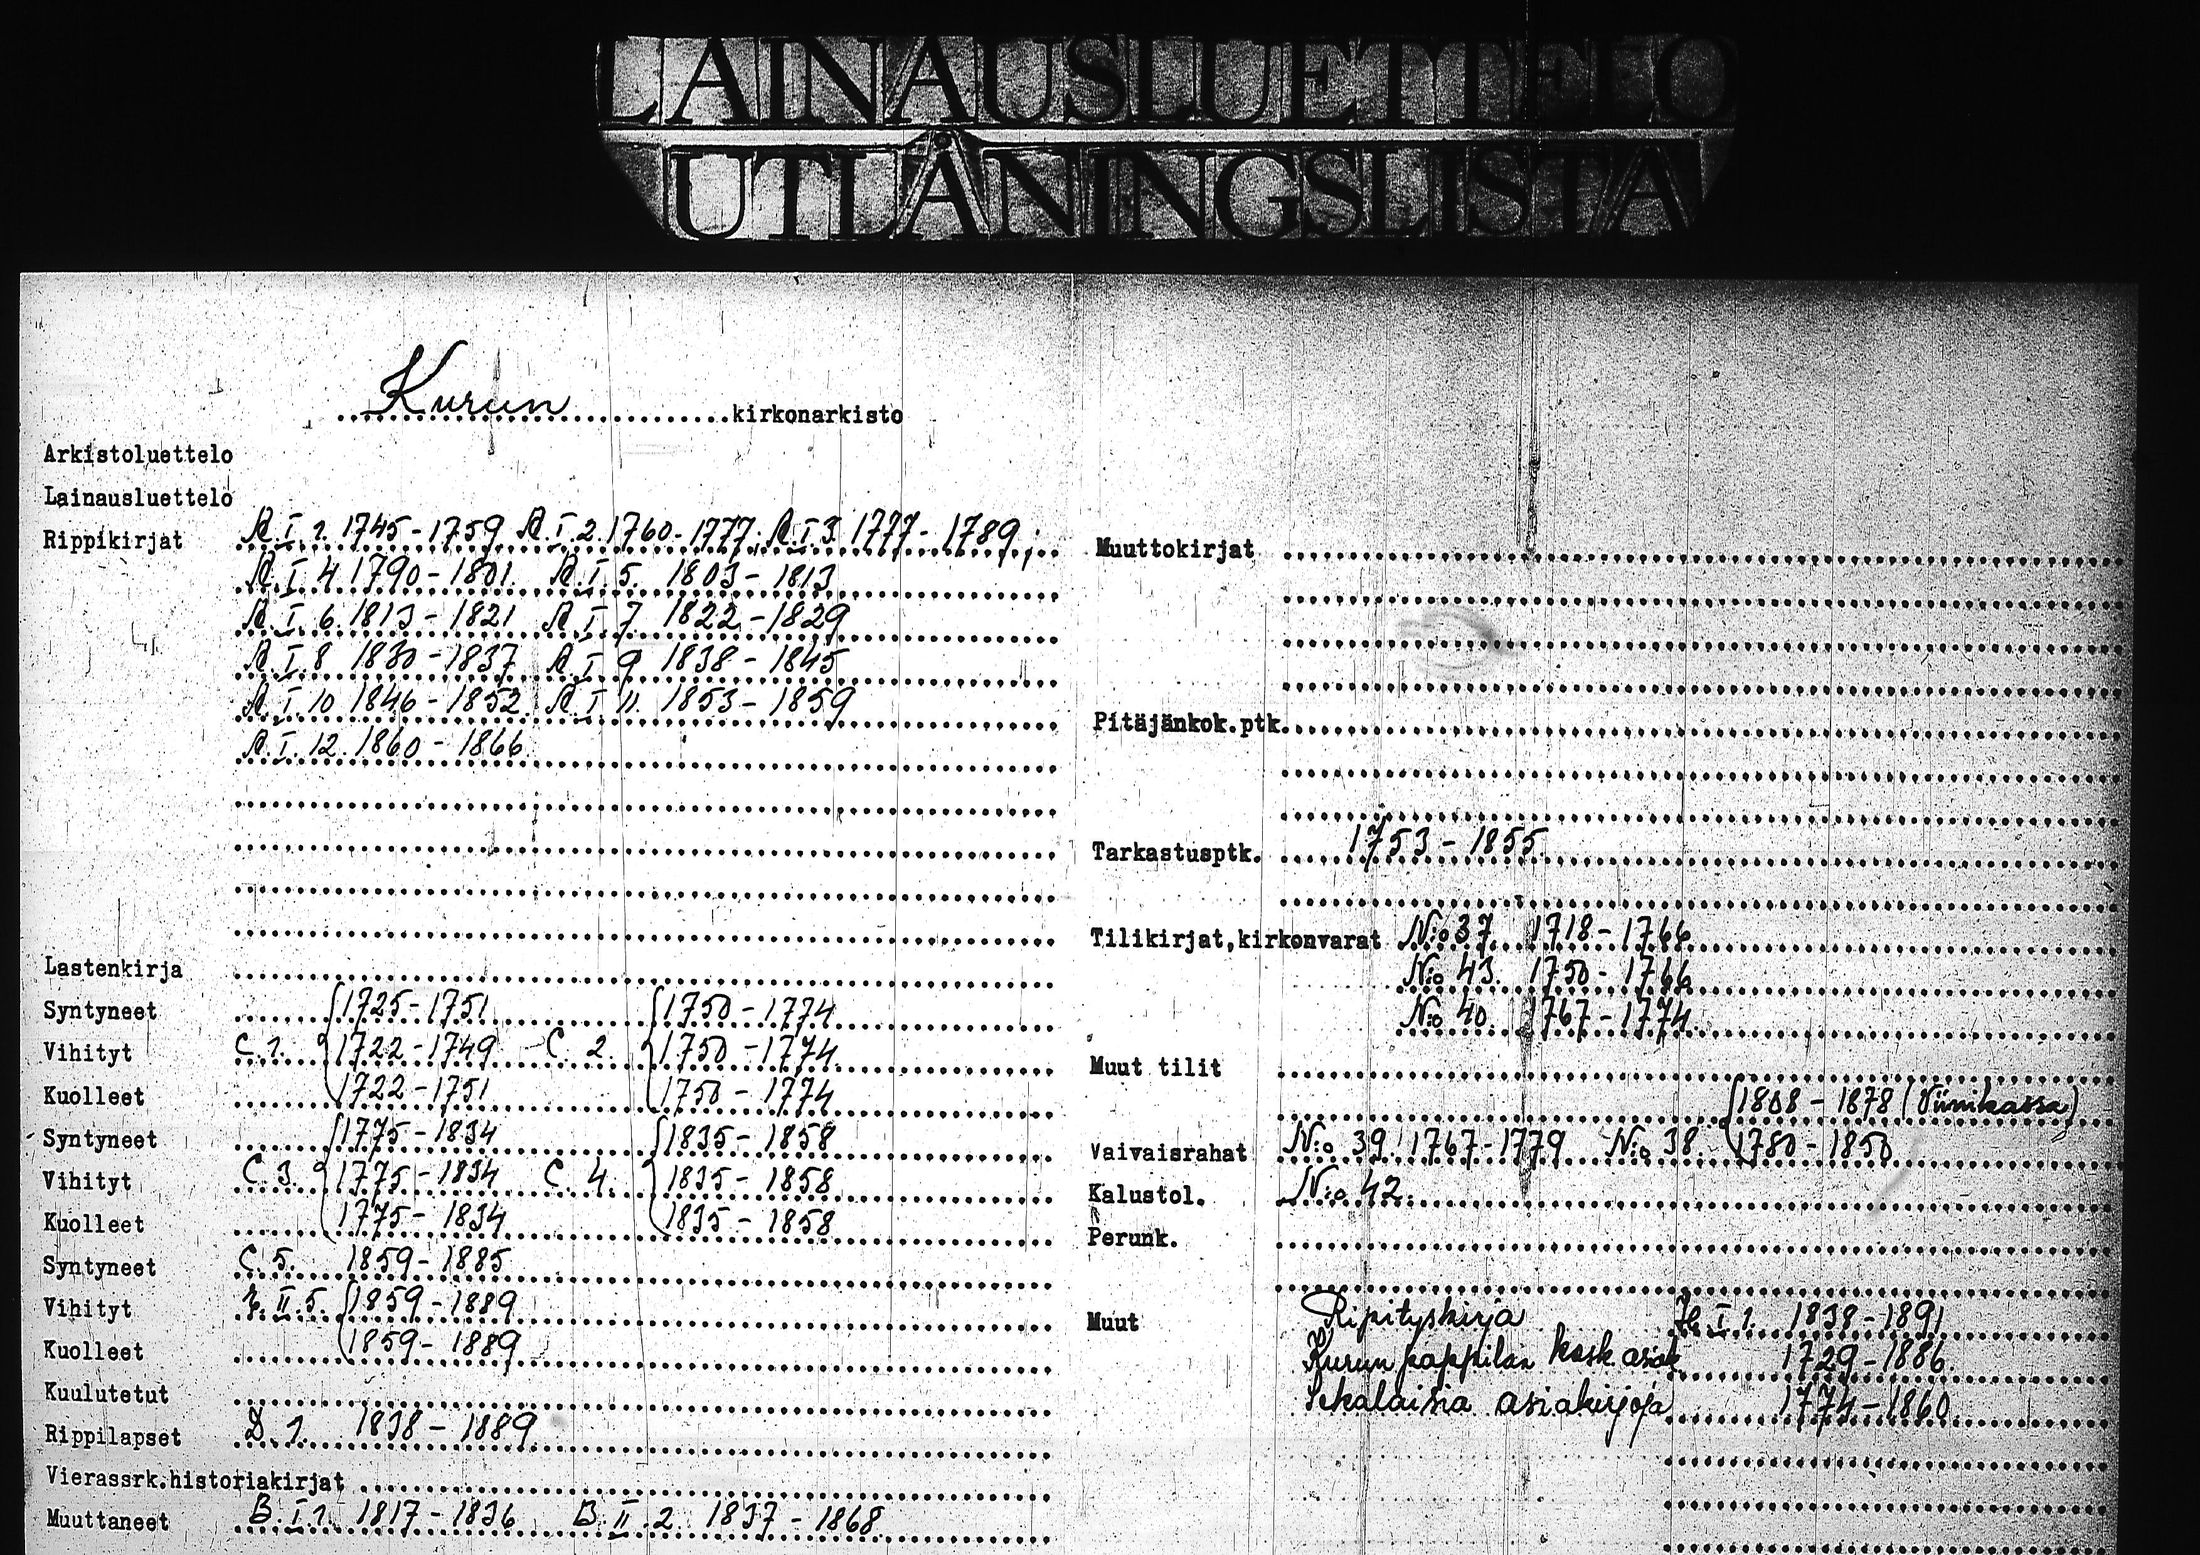 LAINAUSLUETTELO
UTLÅNINGSLISTA
Kurun kirkonarkisto
Arkistoluettelo
Lainausluettelo
Rippikirjat A.I.1. 1745-1759 A.I.2. 1760-1777; A.I.3. 1777-1789;
A.I.4. 1790-1801. A.I.5. 1803-1813
A.I.6. 1813-1821 A.I.7. 1822-1829
A.I.8 1830-1837 A.I.9 1838-1845
A.I.10 1846-1852 A.I.11. 1853-1859
A.I.12. 1860-1866
Lastenkirja
Syntyneet 1725-1751 1750-1774
Vihityt C.1. 1722-1749 C.2. 1750-1774
Kuolleet 1722-1751 1750-1774
Syntyneet 1775-1834 1835-1858
Vihityt C.3. 1775-1834 C.4. 1835-1858
Kuolleet 1775-1834 1835-1858
Syntyneet C.5. 1859-1885
Vihityt II.5. 1859-1889
Kuolleet 1859-1889
Kuulutetut
Rippilapset D.1. 1838-1889
Vierassrk.historiakirjat
Muuttaneet B.I.1. 1817-1836 B.II.2 1837-1868
Muuttokirjat
Pitäjänkok.ptk.
Tarkastusptk. 1753-1855
Tilikirjat,kirkonvarat N:o 37 1718-1766
N:o 43. 1750-1766
N:o 40. 1767-1774
Muut tilit
1808-1878 (Viinikassa)
Vaivaisrahat N:o 39. 1767-1779 N:o 38. 1780-1850
Kalustol. N:o 42.
Perunk.
Muut Ripityskirja I 1. 1838-1891
Kurun pappilan kosk. asiak 1729-1886.
Sekalaisia asiakirjoja 1774-1860